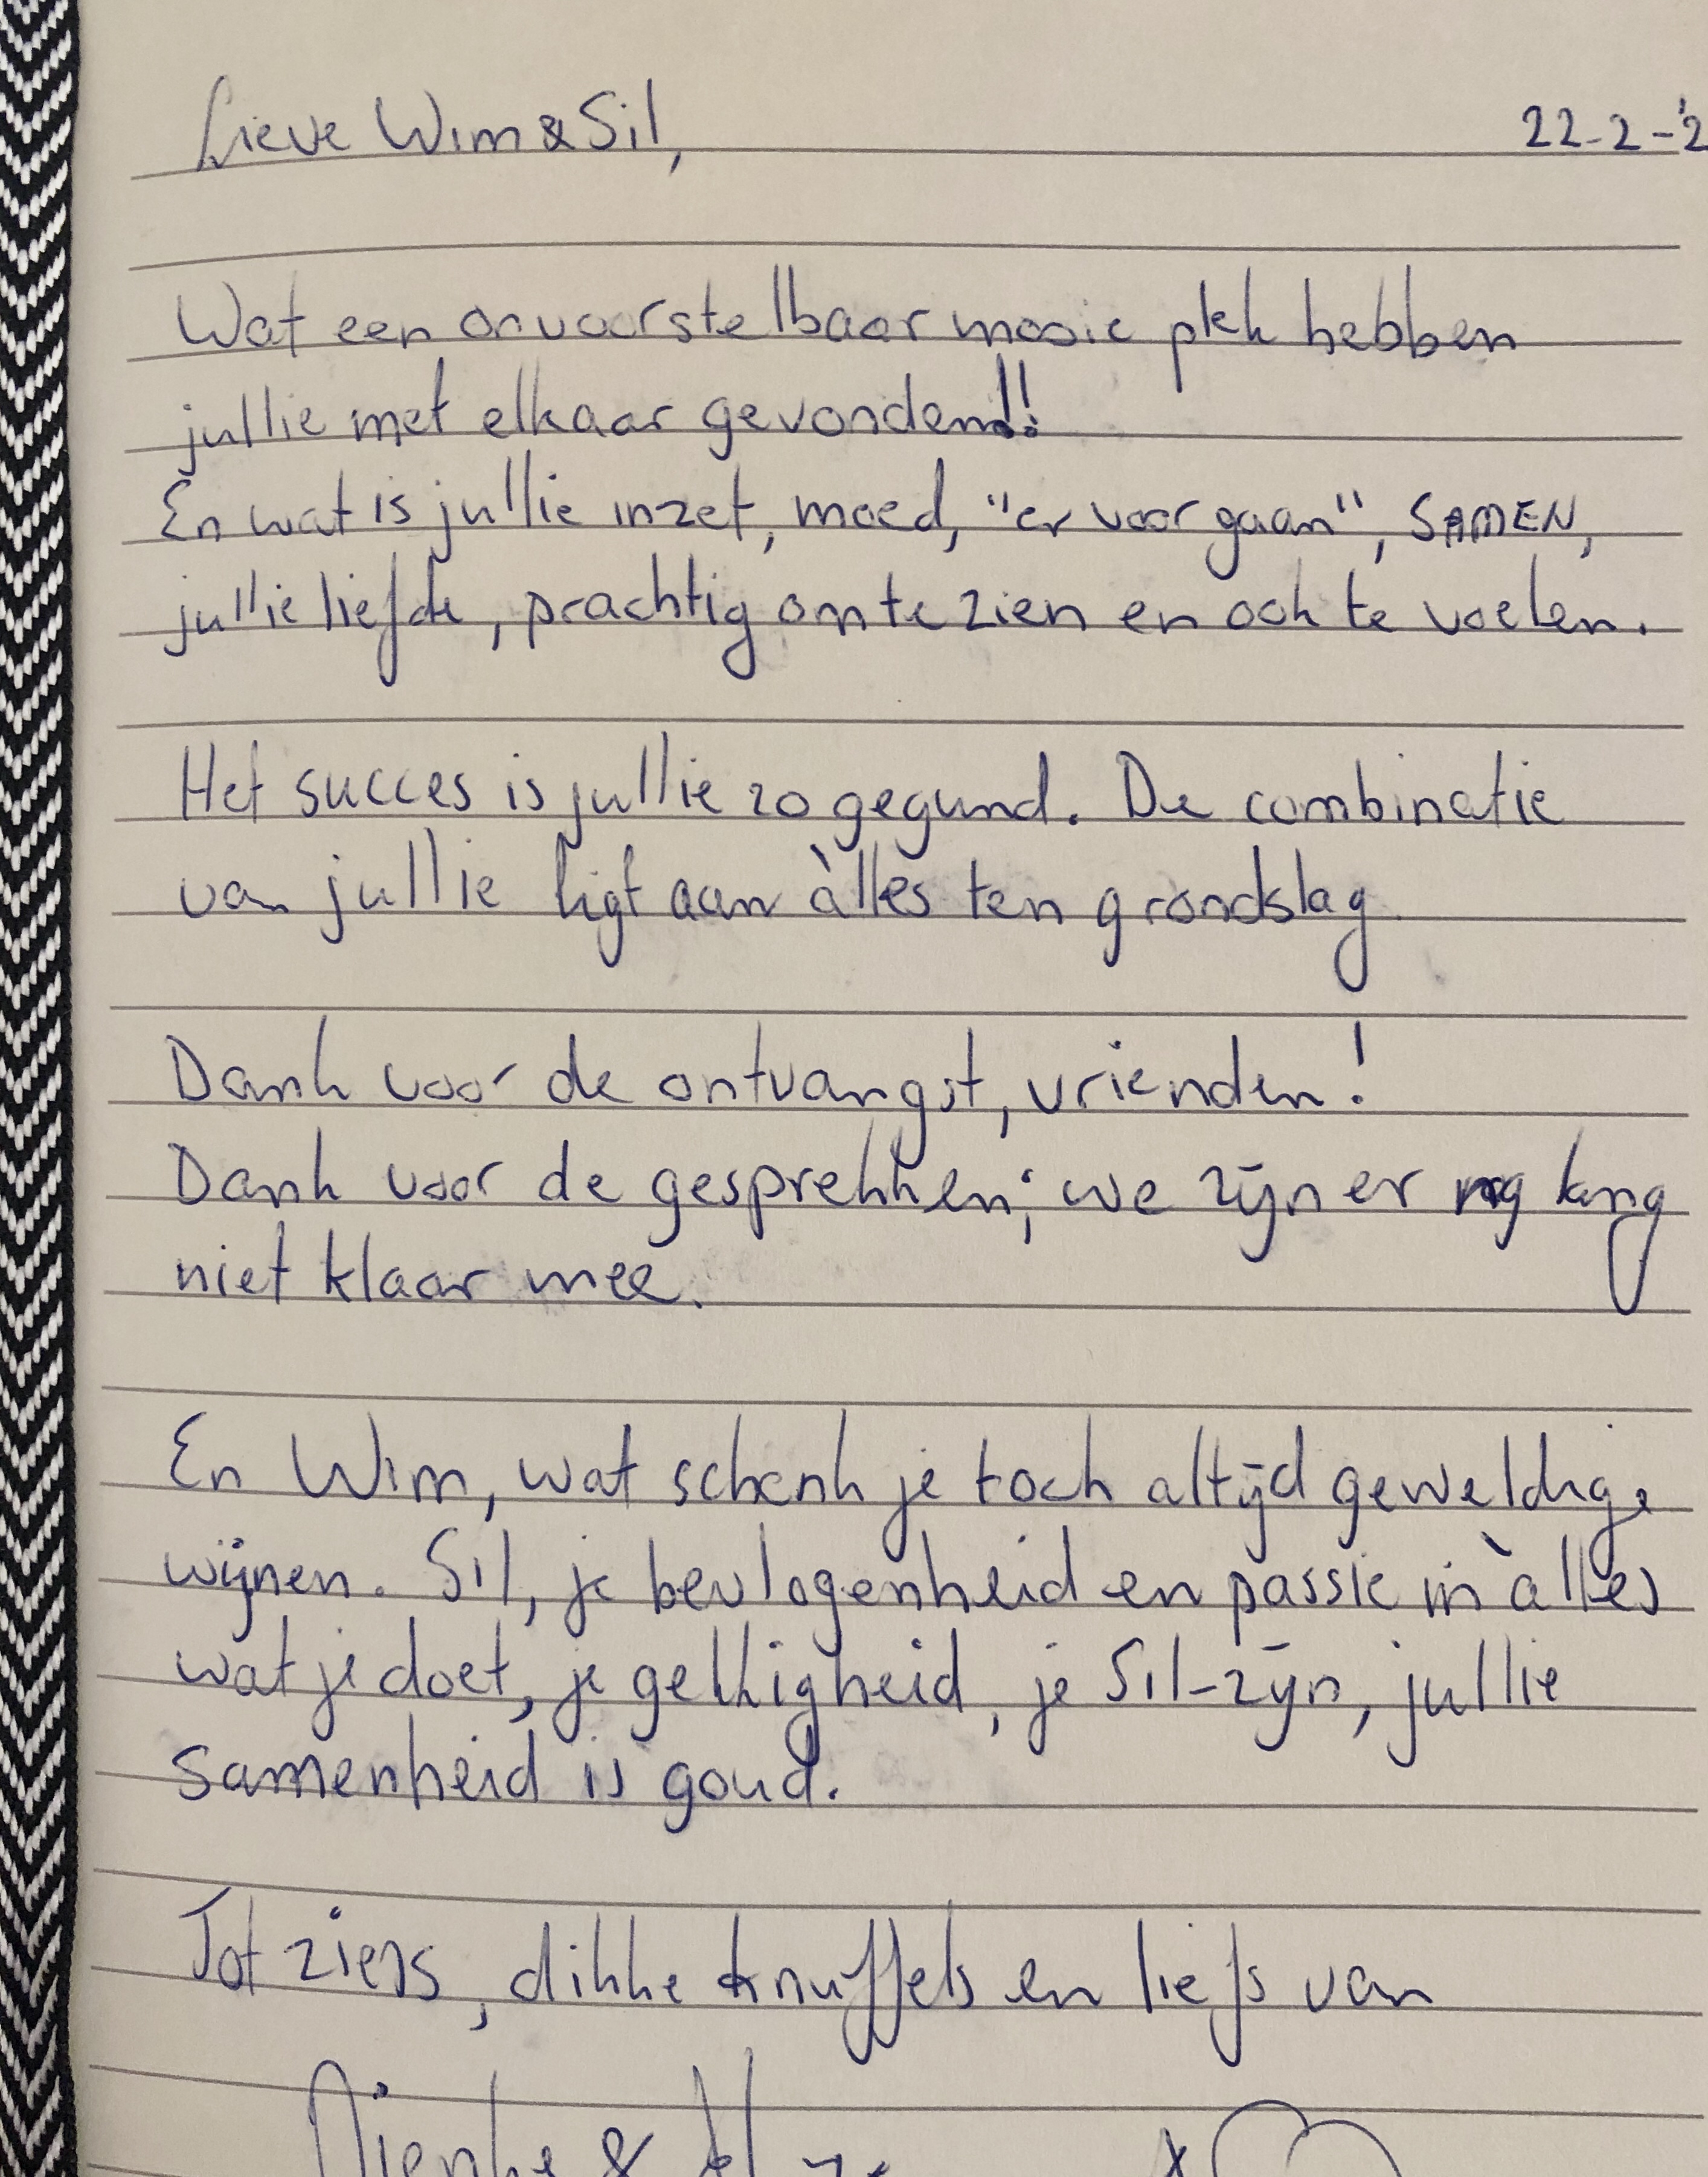 Lieve Wim & Sil,
22-2-'2
Wat een onvoorstelbaar mooie plek hebben
jullie met elkaar gevonden!!
En wat is jullie inzet, moed, "er voor gaan", SAMEN,
jullie liefde, prachtig om te zien en ook te voelen.
Het succes is jullie zo gegund. De combinatie
van jullie ligt aan àlles ten grondslag.
Dank voor de ontvangst, vrienden!
Dank voor de gesprekken; we zijn er nog lang
niet klaar mee.
En Wim, wat schenk je toch altijd geweldige
wijnen. Sil, je bevlogenheid en passie in àlles
wat je doet, je gekkigheid, je Sil-zijn, jullie
samenheid is goud.
Tot ziens, dikke knuffels en liefs van
Nienke &